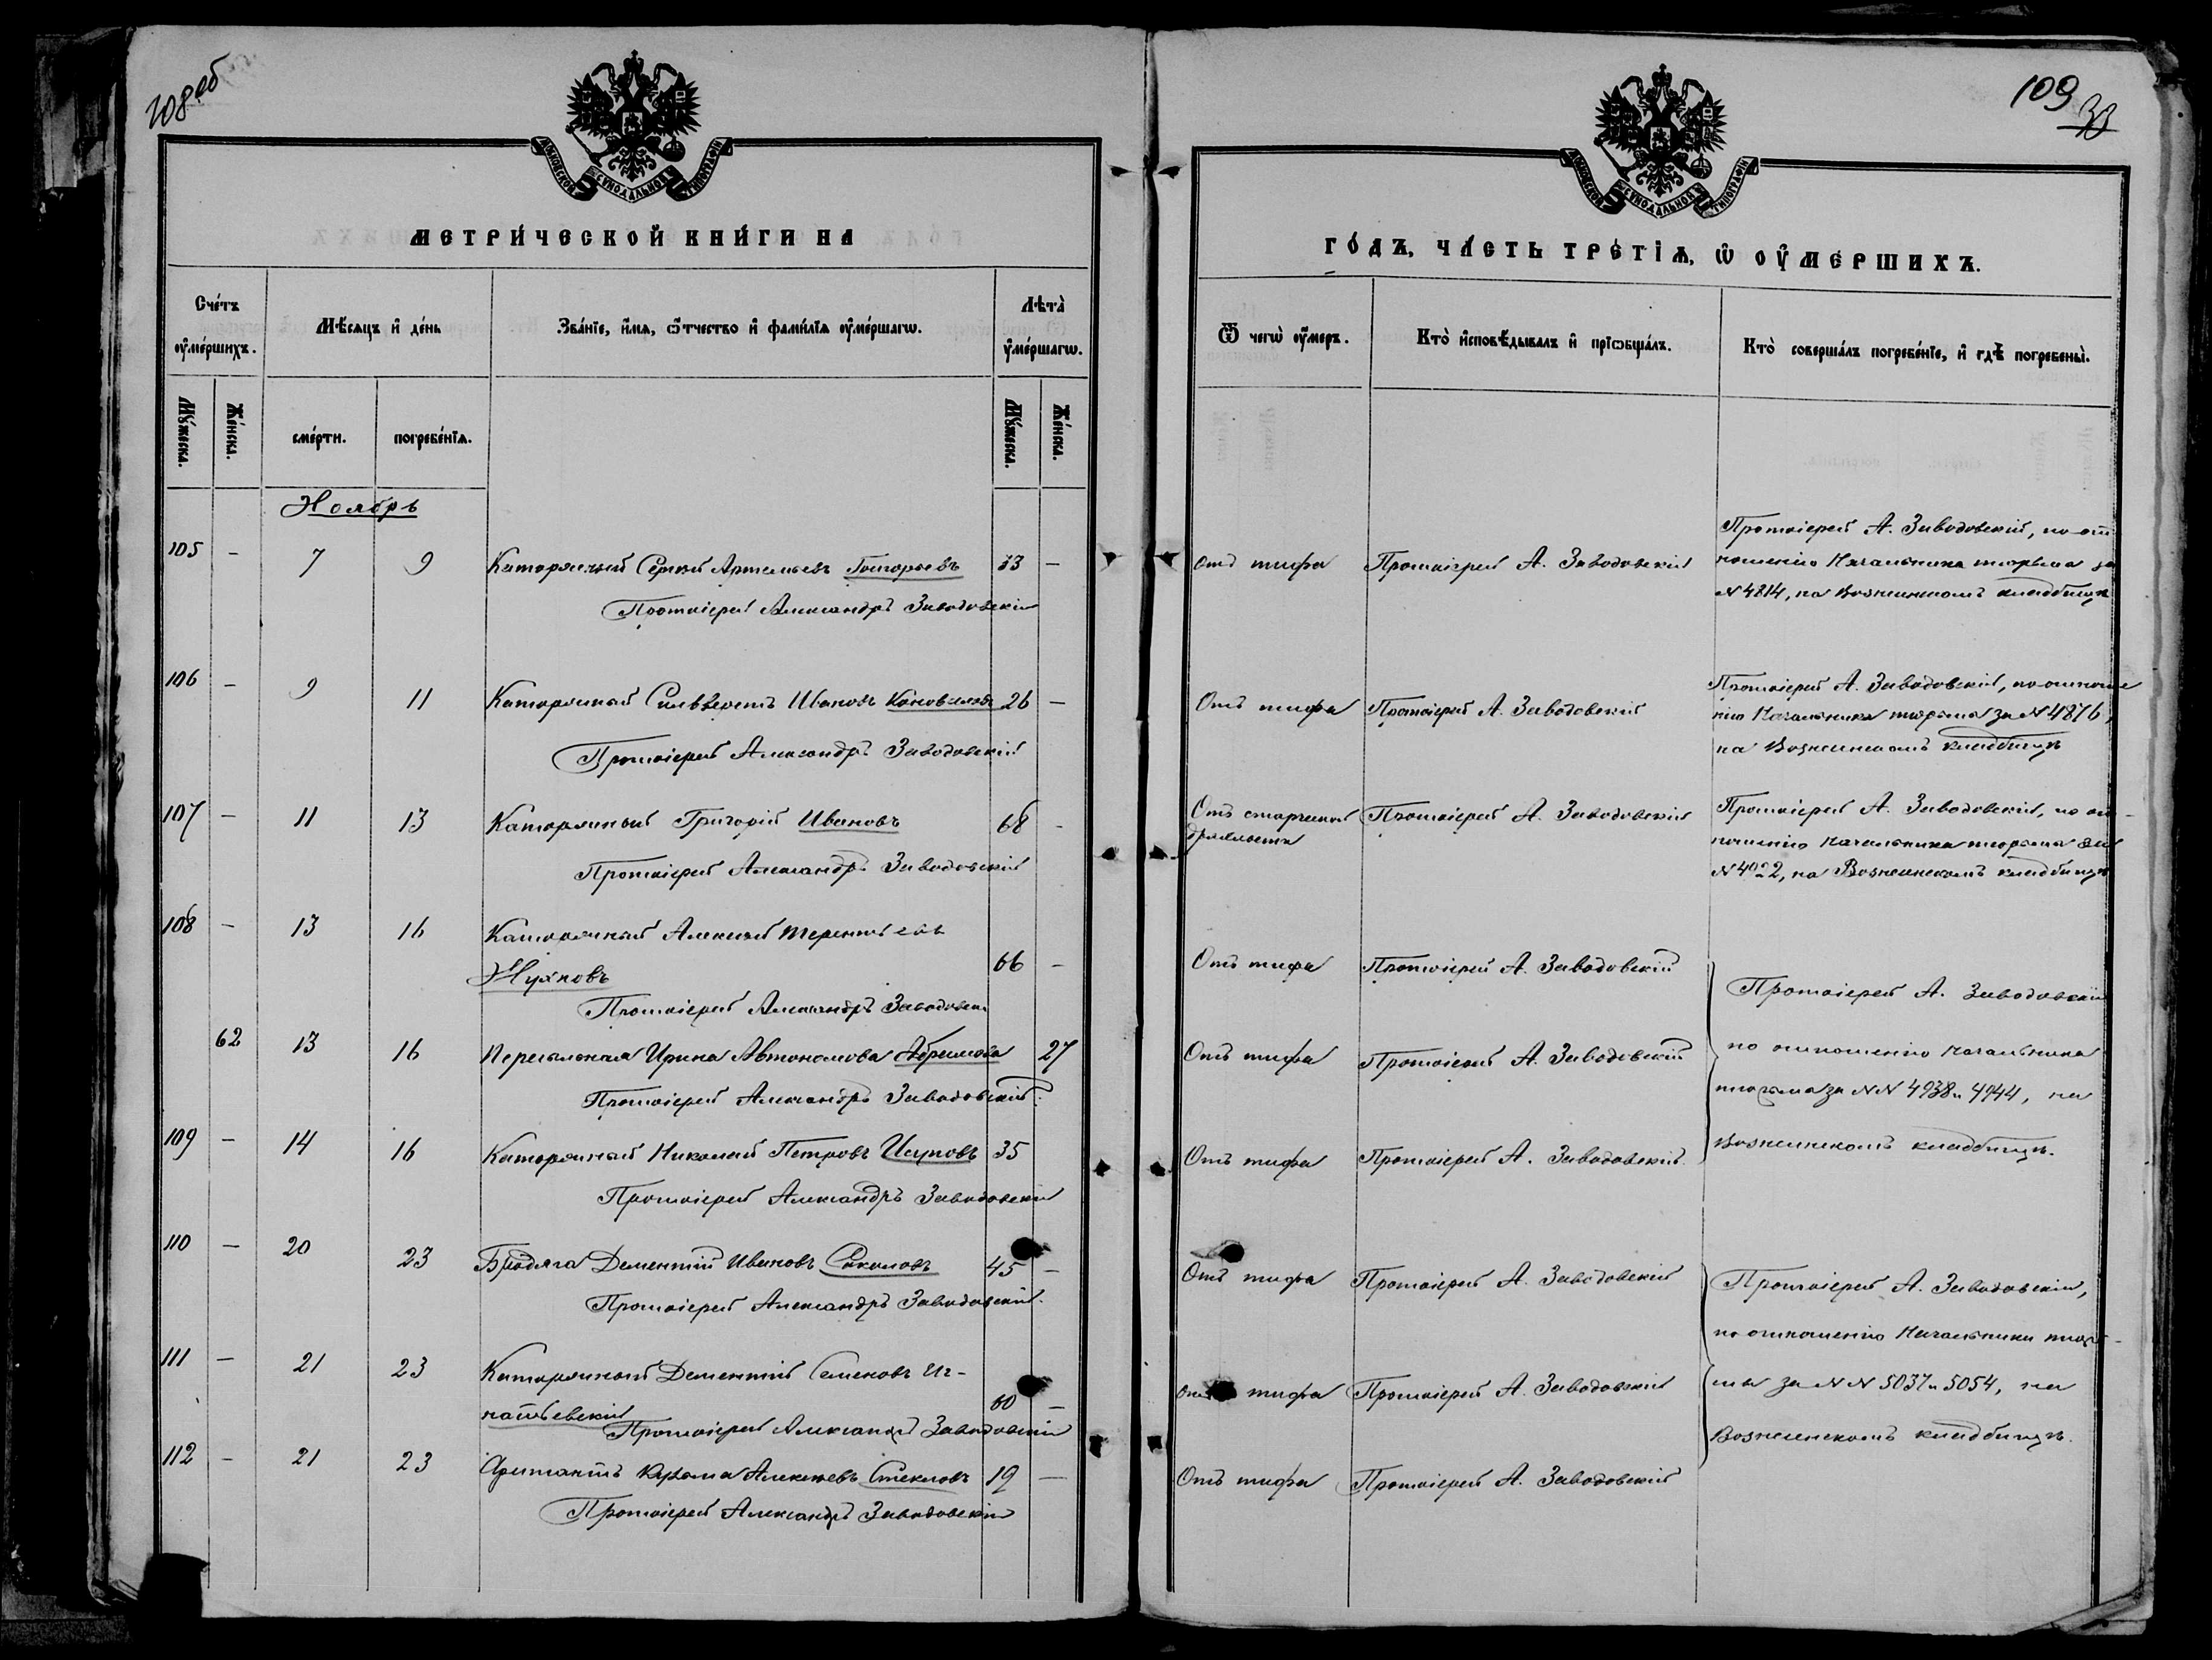 108 об
МОСКОВСКОЙ СѴНОДАЛЬНОЙ ТИПОГРАФІИ
МЕТРИ́ЧЕСКОЙ КНИ́ГИ НА
Сче́тъ ᲂу҆ме́ршихъ.
Мѣ́сяцъ и҆ де́нь
Зва́нїе, и҆́мѧ, ѻ҆́тчество и҆ фами́лїѧ ᲂу҆ме́ршагѡ.
Лѣта̀ ᲂу҆ме́ршагѡ.
Мꙋ́жеска.
Же́нска.
сме́рти.
погребе́нїѧ.
Мꙋ́жеска.
Же́нска.
Ноябрь
105 - 7 9 Каторжный Сергѣй Артемьевъ Григорьевъ 33 —
Протоіерей Александръ Заводовскій
106 - 9 11 Каторжный Сильвестъ Ивановъ Коноваловъ 26 —
Протоіерей Александръ Заводовскій
107 - 11 13 Каторжный Григорій Ивановъ 68 -
Протоіерей Александръ Заводовскій
108 - 13 16 Каторжный Алексѣй Терентьевъ
Жуковъ 66 -
Протоіерей Александръ Заводовскій
62 13 16 Пересыльная Ирина Автономова Абрамова 27
Протоіерей Александръ Заводовскій.
109 - 14 16 Каторжный Николай Петровъ Исуповъ 35
Протоіерей Александръ Заводовскій
110 - 20 23 Бродяга Дементій Ивановъ Соколовъ 45 —
Протоіерей Александръ Заводовскій.
111 - 21 23 Каторжный Дементій Семеновъ Иг-
натьевскій 60 —
Протоіерей Александръ Заводовскій
112 - 21 23 Арестантъ Кузьма Алексѣевъ Стекловъ 19 —
Протоіерей Александръ Заводовскій
109
МОСКОВСКОЙ СѴНОДАЛЬНОЙ ТИПОГРАФІИ
ГО́ДЪ, ЧА́СТЬ ТРЕ́ТЇѦ, Ѡ҆ ОУ҆МЕ́РШИХЪ.
Ѿ чегѡ̀ ᲂу҆́меръ.
Кто̀ и҆сповѣ́дывалъ и҆ прїѡбща́лъ.
Кто̀ соверша́лъ погребе́нїе, и҆ гдѣ̀ погребены̀.
Отъ тифа Протоіерей А. Заводовскій
Протоіерей А. Заводовскій, по от-
ношенію Начальника тюрьмы за
№ 4814, на Вознесенскомъ кладбищѣ
Отъ тифа Протоіерей А. Заводовскій
Протоіерей А. Заводовскій, по отноше
нію Начальника тюрьмы за № 4876,
на Вознесенскомъ кладбищѣ
Отъ старческой Протоіерей А. Заводовскій
дряхлости
Протоіерей А. Заводовскій, по от-
ношенію Начальника тюрьмы за
№ 4922, на Вознесенскомъ кладбищѣ
Отъ тифа Протоіерей А. Заводовскій
Отъ тифа Протоіерей А. Заводовскій
Отъ тифа Протоіерей А. Заводовскій.
Протоіерей А. Заводовскій
по отношенію Начальника
тюрьмы за №№ 4938 и 4944, на
Вознесенскомъ кладбищѣ.
Отъ тифа Протоіерей А. Заводовскій
Отъ тифа Протоіерей А. Заводовскій
Отъ тифа Протоіерей А. Заводовскій
Протоіерей А. Заводовскій,
по отношенію Начальника тюрь-
мы за №№ 5037 и 5054, на
Вознесенскомъ кладбищѣ.